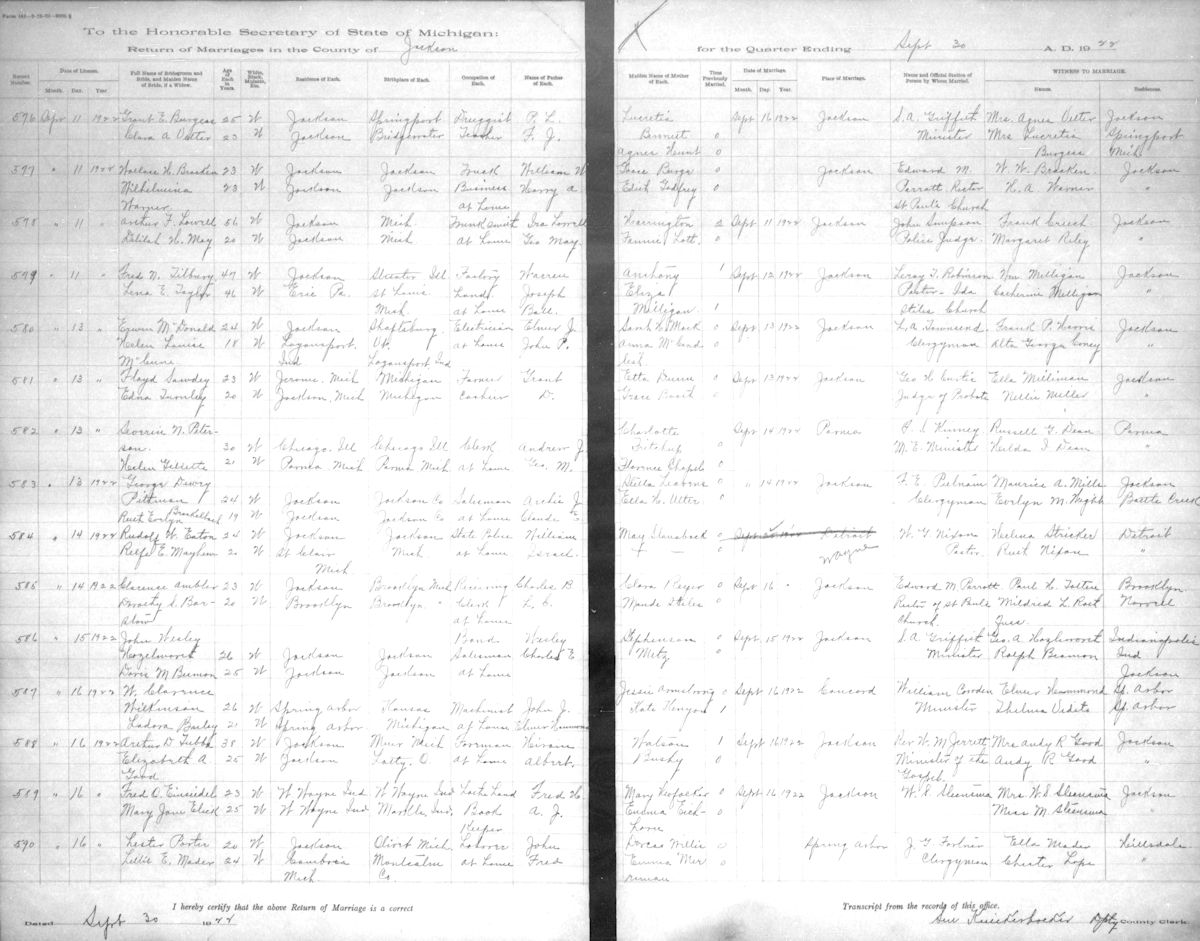 To the Honorable Secretary of State of Michigan:
Return of Marriages in the County of Jackson for the Quarter Ending Sept 30 A. D. 1922
Record Number. Date of License. Month. Day. Year Full Name of Bridegroom and Bride, and Maiden Name of Bride, if a Widow. Age of Each in Years. White, Black, Mulatto, Etc. Residence of Each. Birthplace of Each. Occupation of Each. Name of Father of Each. Maiden Name of Mother of Each. Times Previously Married. Date of Marriage. Month. Day. Year. Place of Marriage. Name and Official Station of Person by Whom Married. WITNESS TO MARRIAGE. Names. Residences.
576 Sept 11 1922 Grant E. Burgess 25 W Jackson Springport Druggist P. L. Lucretia Sept 16 1922 Jackson S. A. Griffith Mrs. Agnes Vetter Jackson
Clara A Vetter 23 W Jackson Bridgewater Teacher F. J. 0 Minister Mrs Lucretia Springport
Agnes 0 Burgess Mich
577 " 11 1922 Wallace H Bracken 23 W Jackson Jackson William W 0 Jackson Edward M. W. W. Bracken Jackson
Wilhelmina 23 W Jackson Jackson Business Harry A Edith Godfrey 0 Parrott Rector H. A Warner "
Warner at home St Paul's Church
578 " 11 " Arthur F. Lowell 56 W Jackson Mich Ira Lowell Warrington 2 Sept 11 1922 Jackson John Simpson Frank Creech Jackson
Delilah H. May 20 W Jackson Mich at home Geo May Fannie 0 Police Judge Margaret Riley "
579 " 11 " Fred N. Tilbury 47 W Jackson Streator Ill Factory Warren Anthony 1 Sept 12 1922 Jackson Leroy T. Robinson Wm Milligan Jackson
Lena E. Taylor 46 W Erie Pa. St Louis Joseph Eliza Pastor - Ida Catherine Milligan
Mich at home Ball. Milligan 1 Stiles Church
580 " 13 " Erwin McDonald 24 W Jackson Shaftsburg Electrician Elmer J. Sarah H. Mack 0 Sept 13 1922 Jackson L. A. Townsend Frank P. Jackson
Helen Louise 18 W Logansport, at home John P. Anna 0 Clergyman Alta Georgia Coney "
Ind Logansport Ind
581 " 13 " Floyd Sawdey 23 W Jerome, Mich Michigan Farmer Grant Etta 0 Sept 13 1922 Jackson Geo H Curtis Ella Milliman Jackson
Edna 20 W Jackson, Mich Michigan Cashier D. Grace 0 Judge of Probate Nellie Miller
582 " 13 " N. Peter- Charlotte Sept 14 1922 Parma Russell G. Dean Parma
son. 30 W Chicago, Ill Chicago Ill Clerk Andrew J. 0 M. E. Minister Hilda I Dean "
Helen Gillette 21 W Parma Mich Parma Mich at home Geo. M. Florence 0
583 . 13 1922 George Dewey Stella 0 " 14 1922 Jackson F. E. Maurice A. Mills Jackson
Pittman 24 W Jackson Jackson Co Salesman Archie J. Ella H. 0 Clergyman Evelyn M. Battle Creek
Ruth Evelyn 19 W Jackson Jackson Co at home Claude E
584 " 14 1922 Rudolf W. Eaton 24 W Jackson Jackson State Police William May 0 Sept Detroit W. G. Nixon Thelma Stricker Detroit
E. Mayhew 20 W St Clair Mich at home Israel 0 Wayne Pastor Ruth Nixon "
Mich
585 " 14 1922 Clarence Ambler 23 W Jackson Brooklyn Mich Charles B Clara 0 Sept 16 " Jackson Edward M Parrott Paul H. Brooklyn
Dorothy S. Bar- 20 W Brooklyn Brooklyn " Clerk Maude 0 Rector of St Pauls Mildred L. Norvell
stow at home Church
586 " 15 1922 John Wesley Bond Wesley Stephenson 0 Sept 15 1922 Jackson S. A. Griffith Geo. A Hazleworst Indianapolis
26 W Jackson Jackson Salesman Charles E Metz 0 Minister Ralph Beamon Ind
Doris M Beamon 25 W Jackson Jackson at home Jackson
587 " 16 1922 W. Clarence Jessie Armstrong 0 Sept 16 1922 Concord William Cowden Elmer Hammond Sp. Arbor
Wilkinson 26 W Spring Arbor Kansas Machinist John J. Kate Kenyon 1 Minister Thelma Sp. Arbor
Ladora Bailey 21 W Spring Arbor Michigan at home Elmer Hammond
588 " 16 1922 Arthur D. 38 W Jackson Muir Mich Foreman Hiram Watson 1 Sept 16 1922 Jackson Rev W. M Jerrett Mrs Andy R Good Jackson
Elizabeth A 25 W Jackson at home Albert. Busby 0 Minister of the Andy R Good "
Good Gospel
589 " 16 " Fred O. Einseidel 23 W W Wayne Ind W Wayne Ind Fred H. Mary 0 Sept 16 1922 Jackson W. S Steensma Mrs W. S Steensma Jackson
Mary Jane 25 W W Wayne Ind Markle, Ind Book A. J. Emma Eich- 0 Miss M. Steensma "
Keeper horn
590 " 16 " Lester Porter 20 W Jackson Olivet Mich Laborer John Dorcas Willie 0 Spring Arbor J. G Fortner Ella Mader Hillsdale
Lillie E. Mader 24 W Cambria Montcalm at home Fred Emma Mer- 0 Clergyman Chester Lope "
Mich Co. riman
I hereby certify that the above Return of Marriage is a correct Transcript from the records of this office.
Dated Sept 30 1922 Knickerbocker Dpty County Clerk